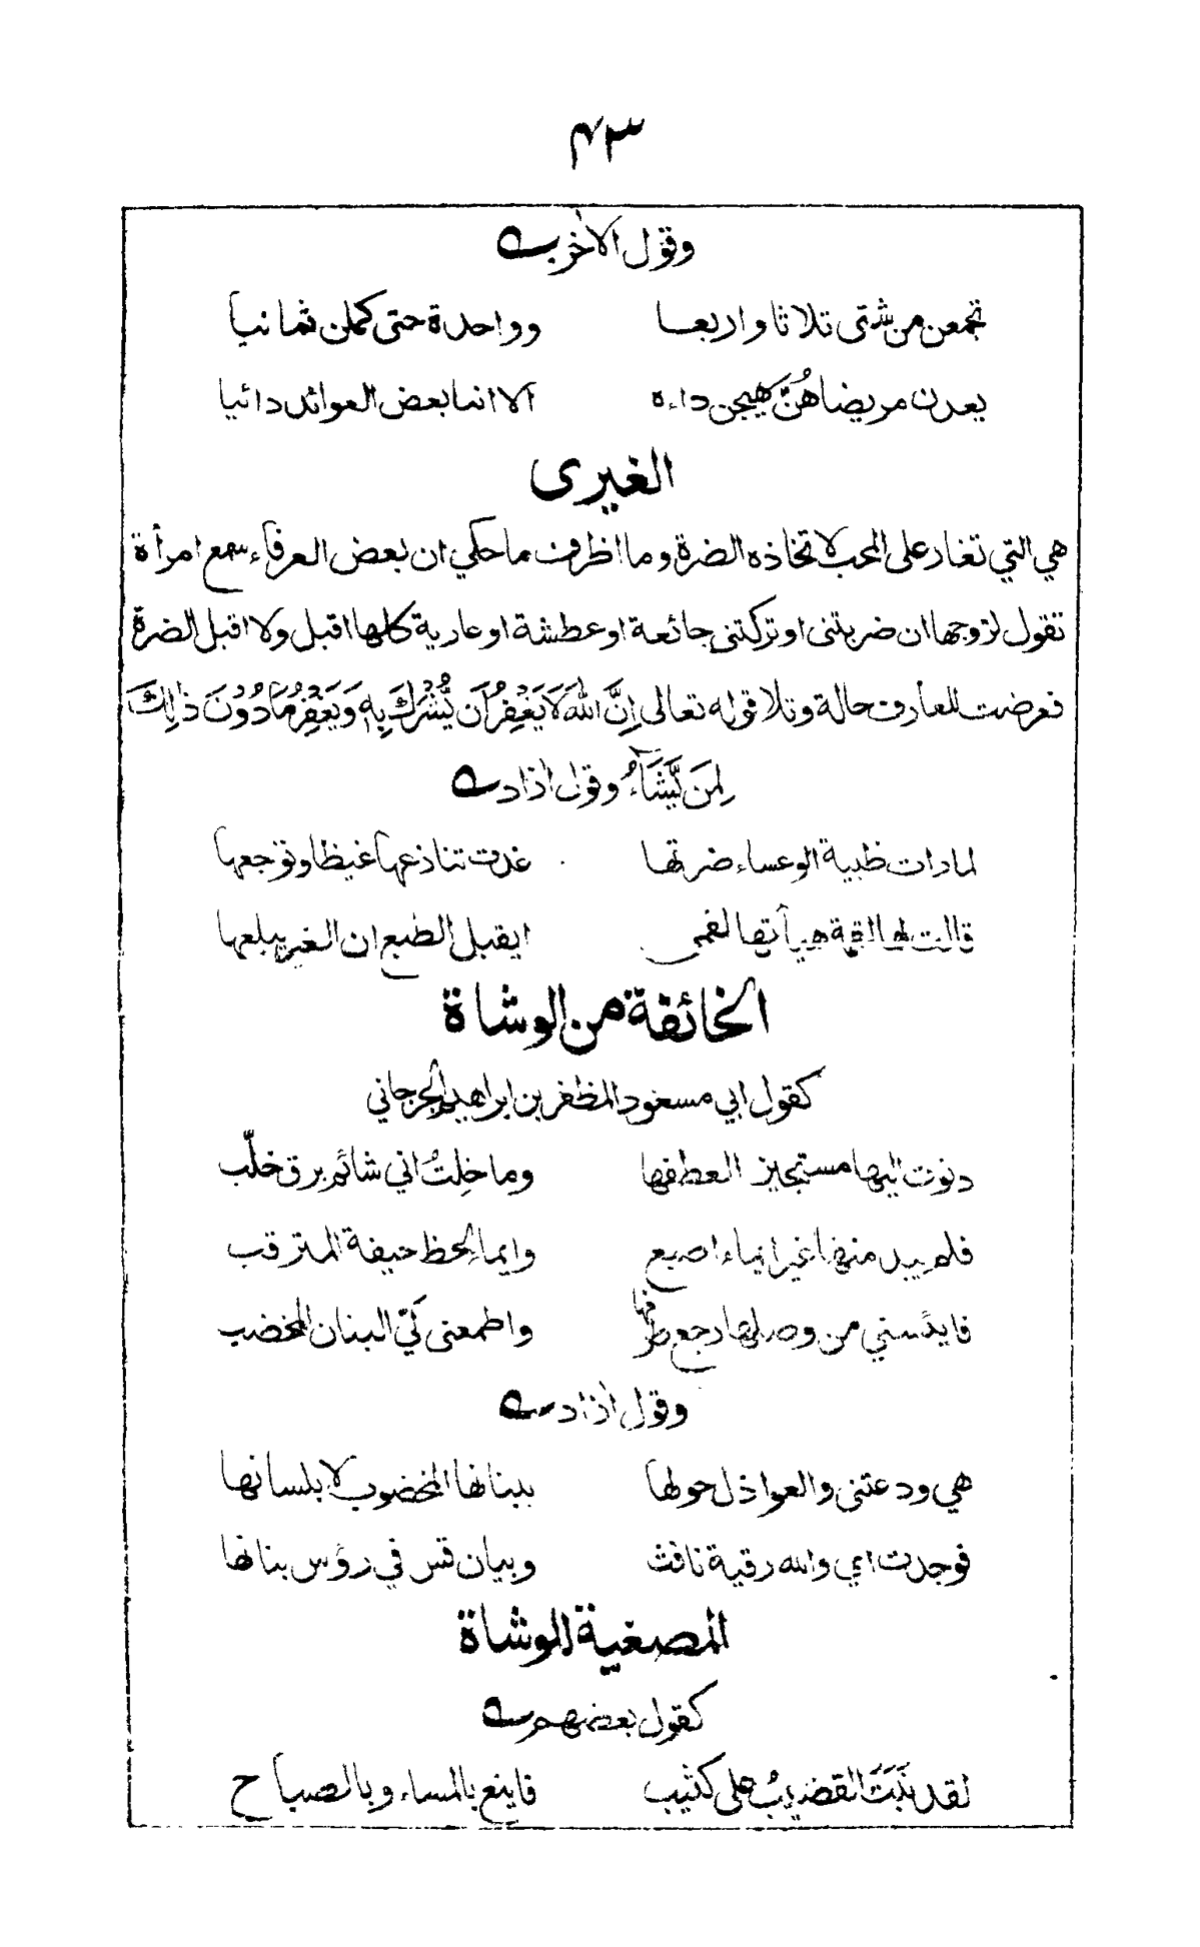 ۴۳
وقول الأخر
تجمعن من شتى ثلاثا واربعا وواحدة حتى كملن ثمانيا
يعدن مريضا هُنَّ هيجن داءه الا انما بعض العوائد دائيا
الغيرى
هي التي تغار على المحب لاتخاذه الضرة وما اظرف ما حكي ان بعض العرفاء سمع امرأة
تقول لزوجها ان ضربتنى او تركتنى جائعة او عطشة او عارية كلها اقبل ولا اقبل الضرة
فعرضت للعارف حالة وتلا قوله تعالى اِنَّ اللهَ لَا يَغْفِرُ اَنْ يُّشْرَكَ بِهٖ وَيَغْفِرُ مَا دُوْنَ ذٰلِكَ
لِمَنْ يَّشَآءُ وقول آزاد
لما رات ظبية الوعساء ضرتها غدت تنازعها غيظا وتوجعها
قالت لها القمة هيأتها لفمى ايقبل الطبع ان الغير يبلعها
الخائفة من الوشاة
كقول ابي مسعود المظفر بن ابراهيم الجرجاني
دنوت اليها مستجيز العطفها وما خِلتُ اني شائم برق خلّب
فلم يبد منها غير ايماء اصبع وايما لحظ خيفة المترقب
فايئسني من وصلها رجع طرفها واطمعنى كيّ البنان المخضب
وقول آزاد
هي ودعتنى والعواذل حولها ببنانها المخضوب لا بلسانها
فوجدت اي والله رقية نافث وبيان قس في رؤس بنانها
المصغية للوشاة
كقول بعضهم
لقد نَبَتَ القضيبُ على كثيب فاينع بالمساء وبالصباح